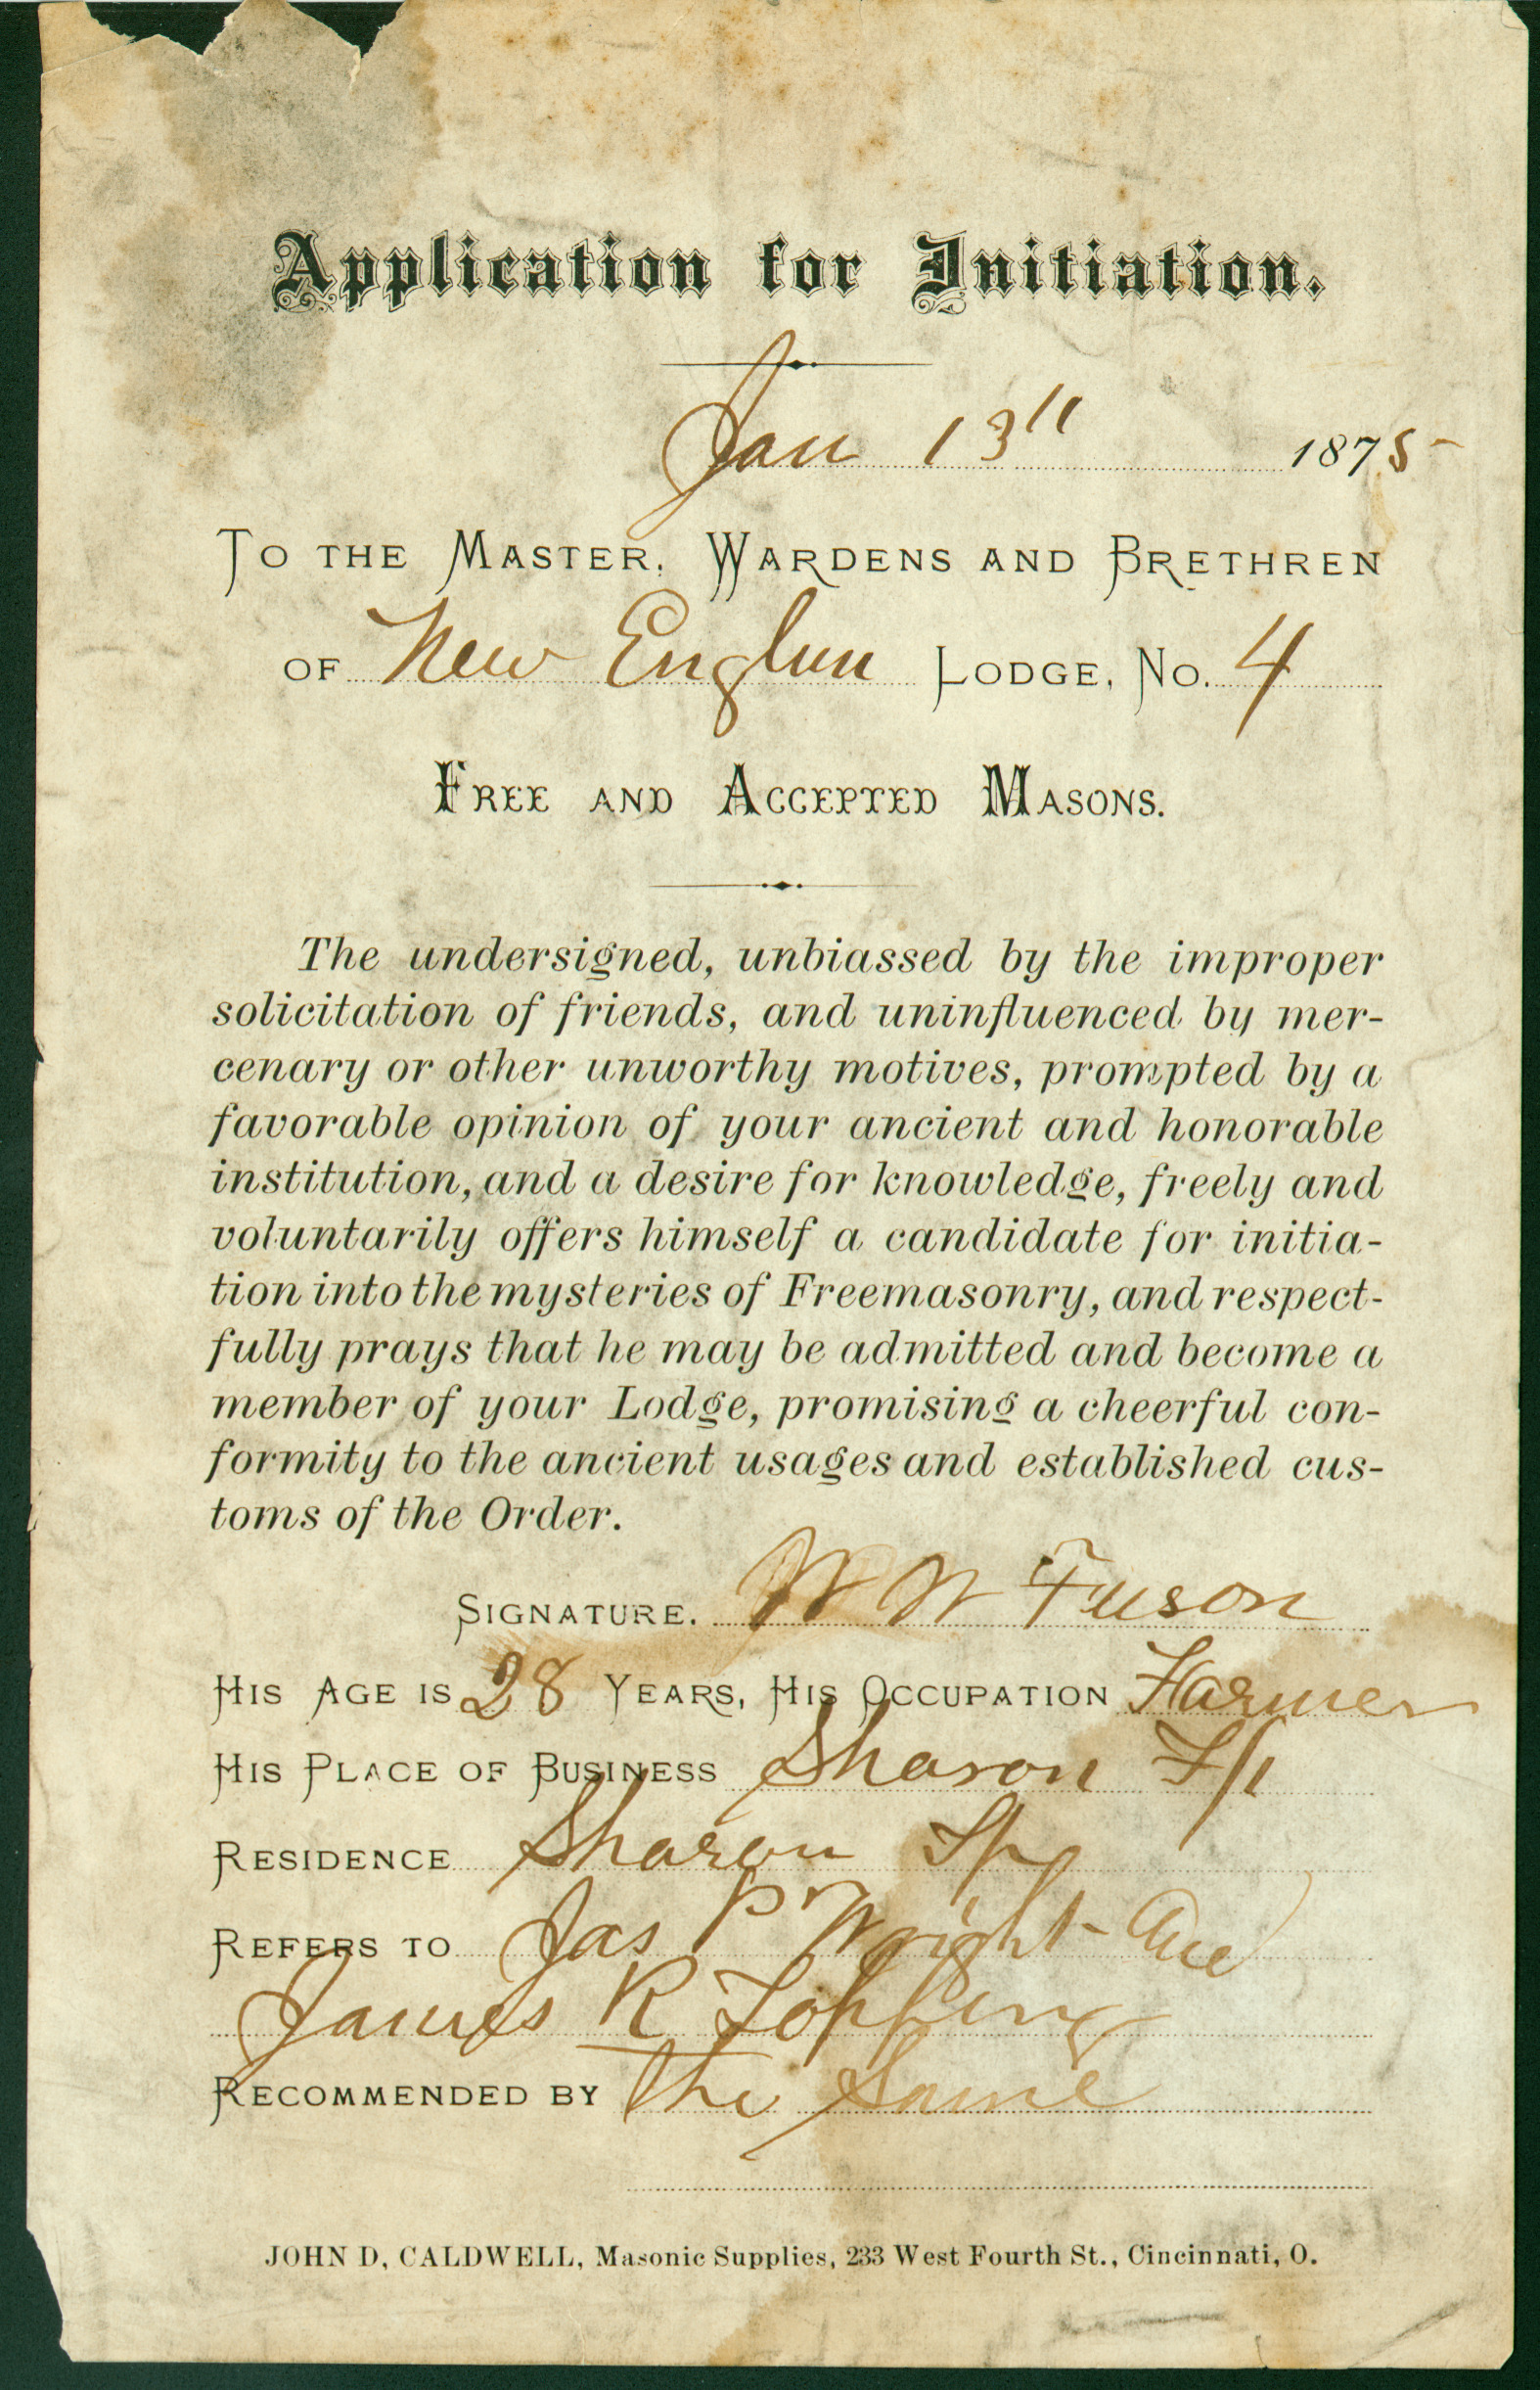 Application for Initiation.
Jan 13" 1875
TO THE MASTER, WARDENS AND BRETHREN
OF New Englan LODGE, NO. 4
FREE AND ACCEPTED MASONS.
The undersigned, unbiassed by the improper
solicitation of friends, and uninfluenced by mer-
cenary or other unworthy motives, prompted by a
favorable opinion of your ancient and honorable
institution, and a desire for knowledge, freely and
voluntarily offers himself a candidate for initia-
tion into the mysteries of Freemasonry, and respect-
fully prays that he may be admitted and become a
member of your Lodge, promising a cheerful con-
formity to the ancient usages and established cus-
toms of the Order.
SIGNATURE. W W Fuson
HIS AGE IS 28 YEARS, HIS OCCUPATION Farmer
HIS PLACE OF BUSINESS Sharon
RESIDENCE Sharon
REFERS TO Jas P Wright and
James R Topping
RECOMMENDED BY The Same
JOHN D, CALDWELL, Masonic Supplies, 233 West Fourth St., Cincinnati, O.